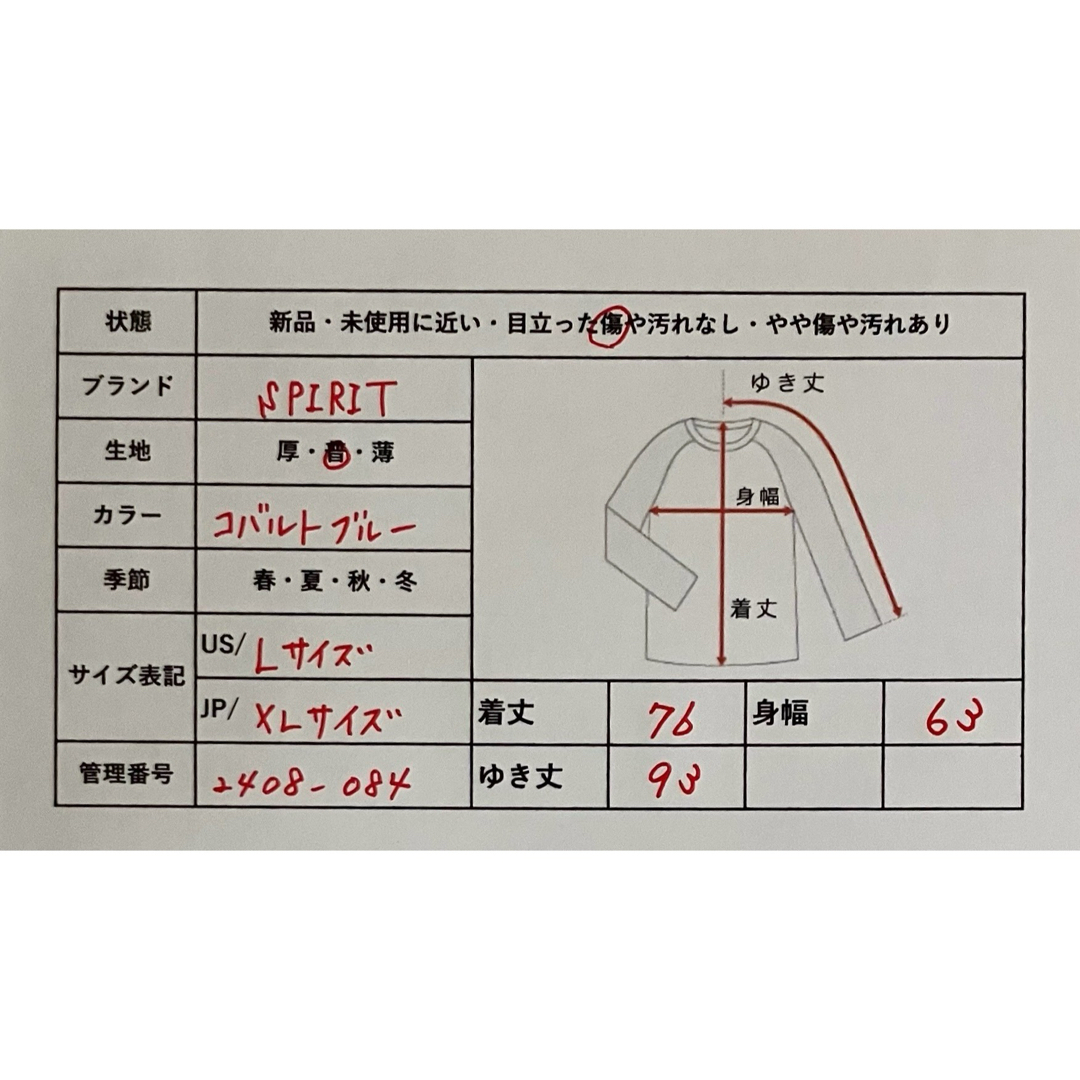 状態 新品・未使用に近い・目立った傷や汚れなし・やや傷や汚れあり
ブランド SPIRIT
ゆき丈
生地 厚・普・薄
身幅
カラー コバルトブルー
季節 春・夏・秋・冬
着丈
サイズ表記 US/ Lサイズ
JP/ XLサイズ 着丈 76 身幅 63
管理番号 2408-084 ゆき丈 93